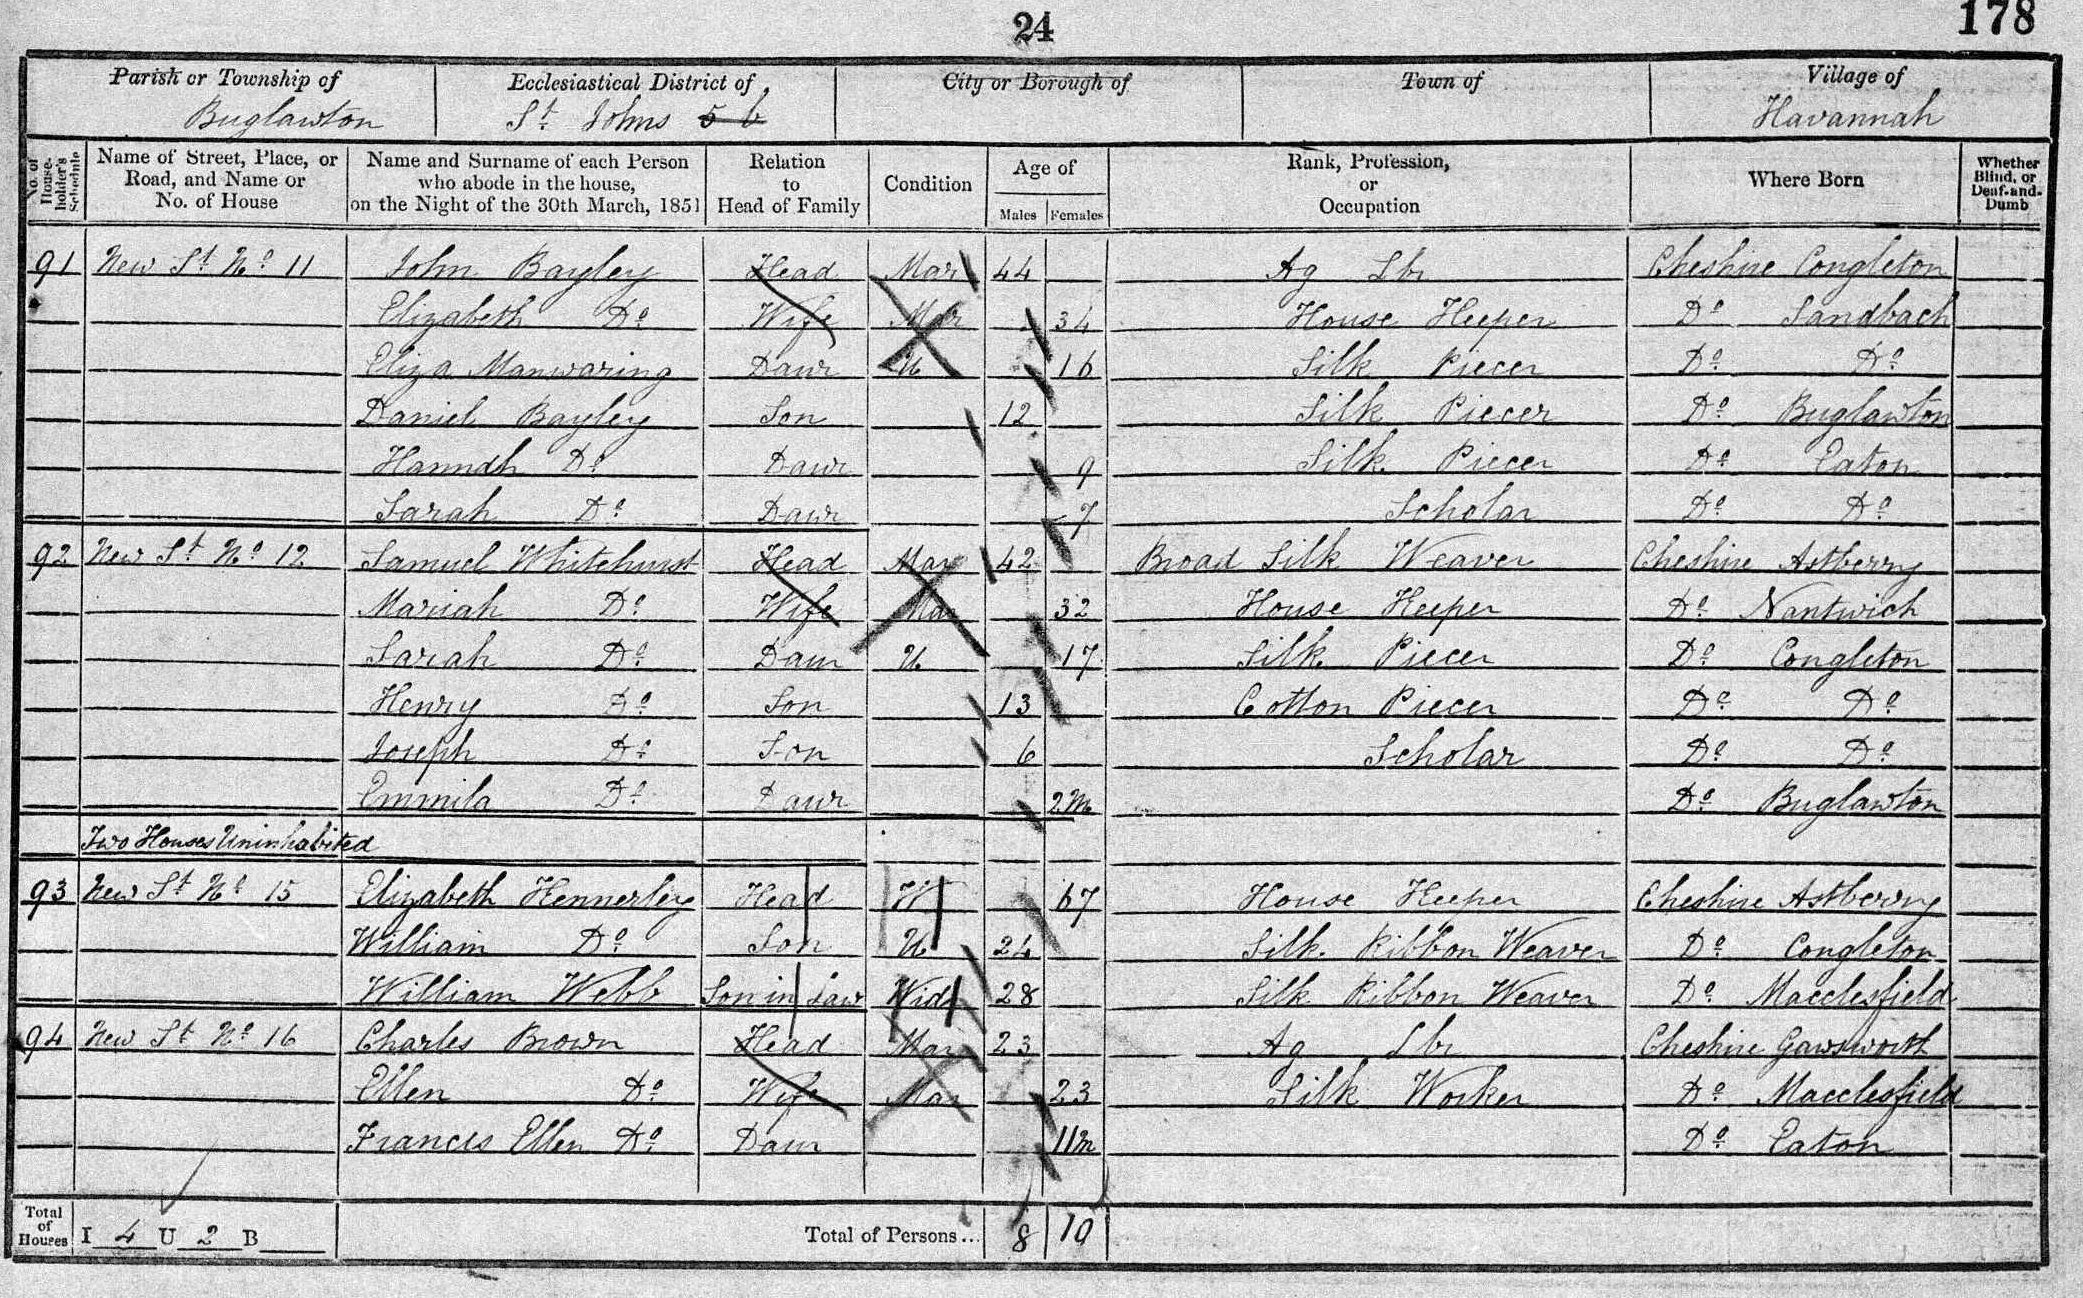 24
178
Parish or Township of
Ecclesiastical District of
City or Borough of
Town of
Village of
Buglawton
St. Johns 5 b
Havannah
No. of House-holder's Schedule
Name of Street, Place, or Road, and Name or No. of House
Name and Surname of each Person who abode in the house, on the Night of the 30th March, 1851
Relation to Head of Family
Condition
Age of
Males
Females
Rank, Profession, or Occupation
Where Born
Whether Blind, or Deaf-and-Dumb
91 New St No 11 John Bayley Head Mar 44 Ag Lbr Cheshire Congleton
Elizabeth Do Wife Mar 34 House Keeper Do Sandbach
Eliza Manwaring Daur U 16 Silk Piecer Do Do
Daniel Bayley Son 12 Silk Piecer Do Buglawton
Hannah Do Daur 9 Silk Piecer Do Eaton
Sarah Do Daur 7 Scholar Do Do
92 New St No 12 Samuel Whitehurst Head Mar 42 Broad Silk Weaver Cheshire Astberry
Mariah Do Wife Mar 32 House Keeper Do Nantwich
Sarah Do Daur U 17 Silk Piecer Do Congleton
Henry Do Son 13 Cotton Piecer Do Do
Joseph Do Son 6 Scholar Do Do
Emmila Do Daur 2m Do Buglawton
Two Houses Uninhabited
93 New St No 15 Elizabeth Hennerley Head W 67 House Keeper Cheshire Astberry
William Do Son U 24 Silk Ribbon Weaver Do Congleton
William Webb Son in Law Wid 28 Silk Ribbon Weaver Do Macclesfield
94 New St No 16 Charles Brown Head Mar 23 Ag Lbr Cheshire Gawsworth
Ellen Do Wife Mar 23 Silk Worker Do Macclesfield
Frances Ellen Do Daur 11m Do Eaton
Total of Houses I 4 U 2 B Total of Persons... 8 10